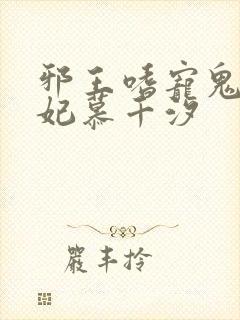 邪王嗜寵鬼
妃慕千汐
嚴丰拎